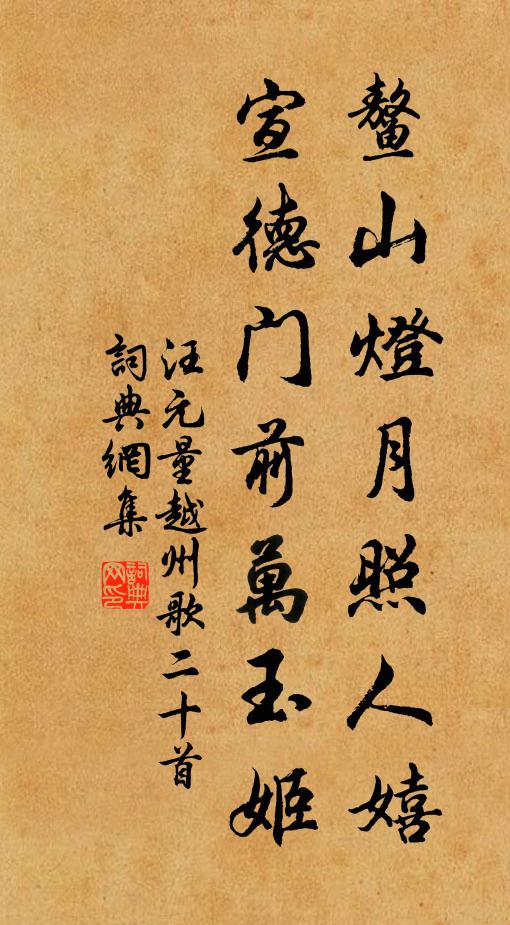 鰲山燈月照人嬉
宣德門前萬玉姬
汪元量越州歌二十首
詞典網集
詞典網印